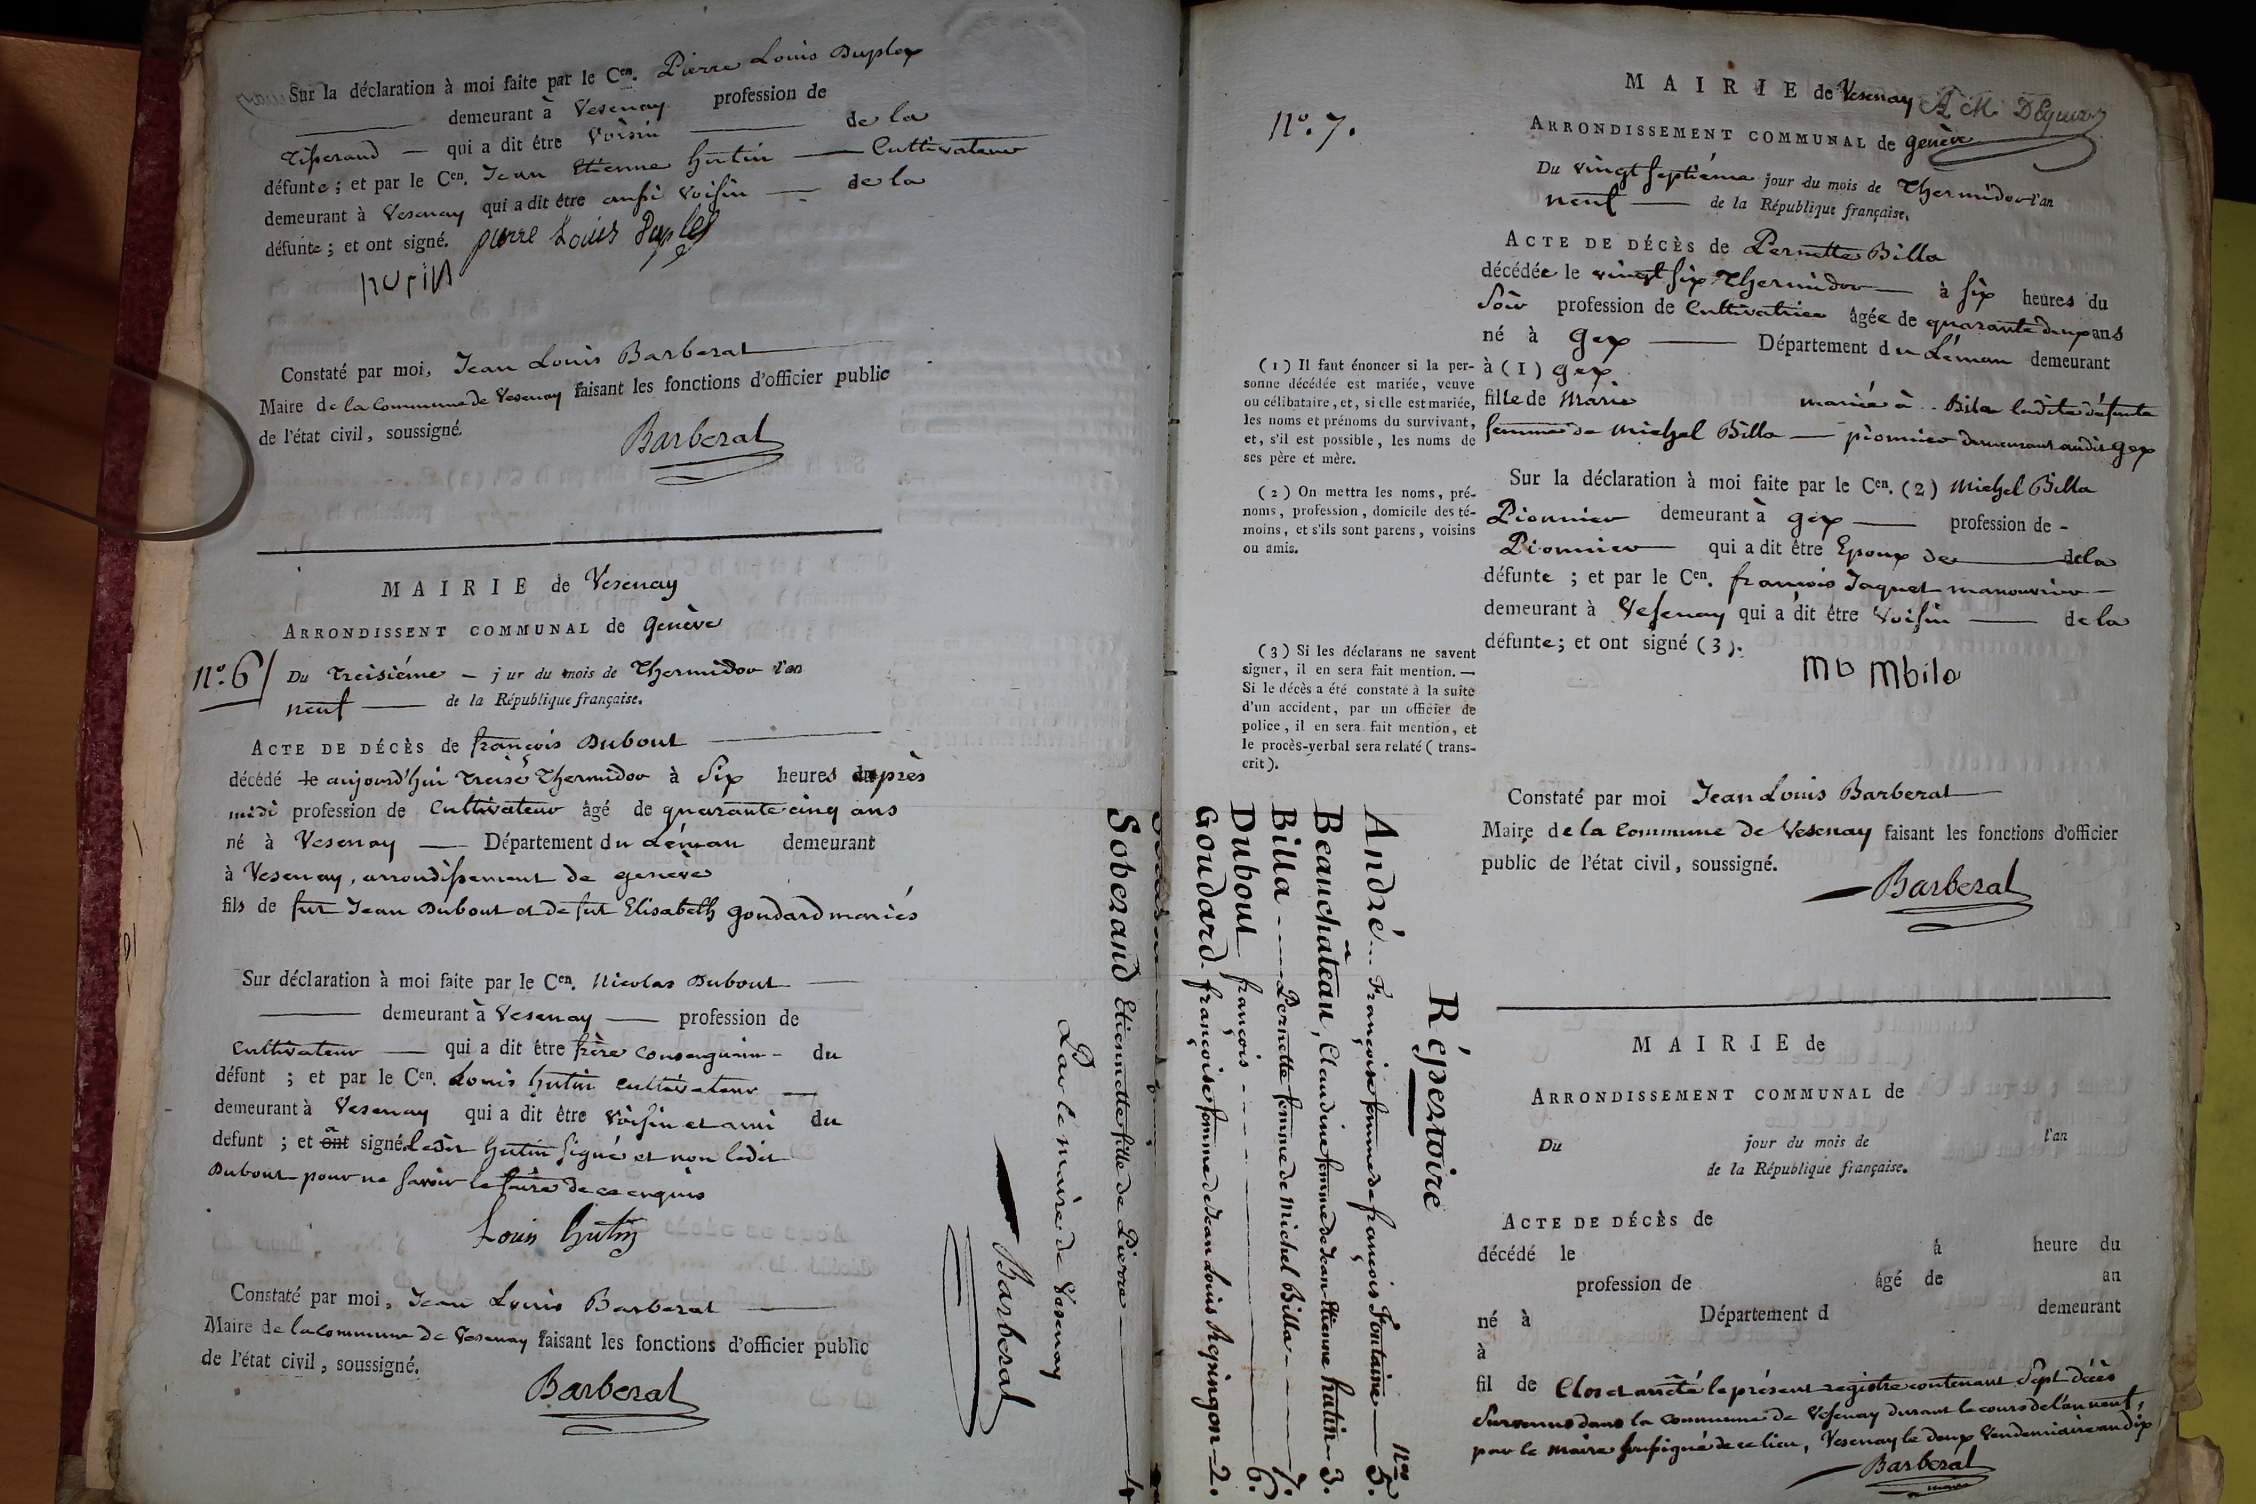 Sur la déclaration à moi faite par le Cen. Pierre Louis Duplex
demeurant à Vesenay profession de
Tisserand — qui a dit être Voisin de la
défunte ; et par le Cen. Jean Etienne hutin — Cultivateur
demeurant à Vesenay qui a dit être aussi Voisin — de la
défunte ; et ont signé. pierre Louis Duplex
hutin
Constaté par moi, Jean Louis Barberat
Maire de la Commune de Vesenay faisant les fonctions d'officier public
de l'état civil, soussigné.
Barberat
MAIRIE de Vesenay
ARRONDISSENT COMMUNAL de genève
n°. 6
Du Treisiéme — j ur du mois de Thermidor l'an
neuf — de la République française.
ACTE DE DÉCÈS de françois Dubout
décédé le aujourd'hui treise Thermidor à Six heures après
midi profession de Cultivateur âgé de quarante cinq ans
né à Vesenay — Département du Léman demeurant
à Vesenay, arrondissement de genève
fils de fut Jean Dubout et de fut Elisabeth goudard mariés
Sur déclaration à moi faite par le Cen. Nicolas Dubout
demeurant à Vesenay — profession de
Cultivateur — qui a dit être frère consanguin - du
défunt ; et par le Cen. Louis hutin cultivateur —
demeurant à Vesenay qui a dit être voisin et ami du
defunt ; et ont a signé ledit hutin signé et non ledit
Dubout pour ne savoir le faire de ce enquis
Louis hutin
Constaté par moi, Jean Louis Barberat
Maire de la commune de Vesenay faisant les fonctions d'officier public
de l'état civil, soussigné.
Barberat
n°. 7.
MAIRIE de Vesenay
ARRONDISSEMENT COMMUNAL de genève
Du vingt septiéme jour du mois de Thermidor l'an
neuf — de la République française.
ACTE DE DÉCÈS de Pernette Billa
décédée le vingt six Thermidor — à six heures du
Soir profession de Cultivatrice âgée de quarante deux ans
né à gex — Département du Léman demeurant
à (1) gex
fille de Marie mariée à .. Bila ladite défunte
femme de Michel Billa — pionnier demeurant audit gex
Sur la déclaration à moi faite par le Cen. (2) Michel Billa
Pionnier demeurant à gex — profession de -
Pionnier — qui a dit être Epoux de — de la
défunte ; et par le Cen. françois Jaquet manouvrier —
demeurant à Vesenay qui a dit être Voisin — de la
défunte ; et ont signé (3).
mbila
Constaté par moi Jean Louis Barberat
Maire de la Commune de Vesenay faisant les fonctions d'officier
public de l'état civil, soussigné.
Barberat
(1) Il faut énoncer si la per-
sonne décédée est mariée, veuve
ou célibataire, et, si elle est mariée,
les noms et prénoms du survivant,
et, s'il est possible, les noms de
ses père et mère.
(2) On mettra les noms, pré-
noms, profession, domicile des té-
moins, et s'ils sont parens, voisins
ou amis.
(3) Si les déclarans ne savent
signer, il en sera fait mention. —
Si le décès a été constaté à la suite
d'un accident, par un officier de
police, il en sera fait mention, et
le procès-verbal sera relaté (trans-
crit).
Répertoire
nos
André... Françoise femme de françois Fontaine — 5.
Beauchâteau, Claudine femme de Jean Etienne hutin — 3.
Billa — Pernette femme de Michel Billa — 7.
Dubout françois — 6.
Goudard françoise femme de Jean Louis — 2.
Soberand Etiennette fille de Pierre — 4
Par le maire de Vesenay
Barberat
MAIRIE de
ARRONDISSEMENT COMMUNAL de
Du jour du mois de l'an
de la République française.
ACTE DE DÉCÈS de
décédé le à heure du
profession de âgé de an
né à Département d demeurant
à
fil de Clos et arrêté le présent registre contenant Sept décès
Survenus dans la commune de Vesenay durant le cours de l'an neuf,
par le Maire soussigné de ce lieu, Vesenay le deux Vendemiaire an dix
Barberat
maire